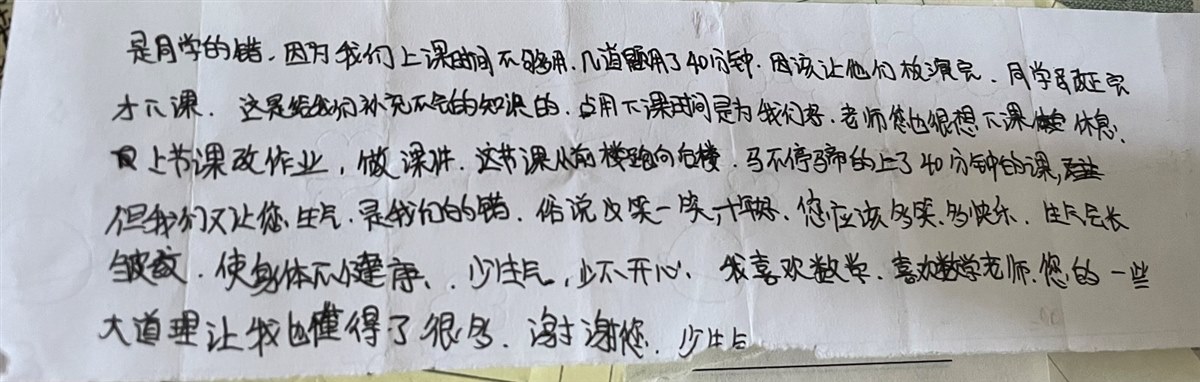 是同学的错，因为我们上课时间不够用，几道题用了40分钟，因该让他们板演完，同学改正完
才下课，这是给我们补充不会的知识的，占用下课时间是为我们好，老师您也很想下课休息，
上节课改作业，做课件，这节课从前楼跑向后楼，马不停蹄的上了40分钟的课，
但我们又让您生气，是我们的错，俗说说笑一笑，十年好，您应该多笑，多快乐，生气会长
皱纹，使身体不健康，少生气，少不开心，我喜欢数学，喜欢数学老师，您的一些
大道理让我也懂得了很多，谢谢您，少生气